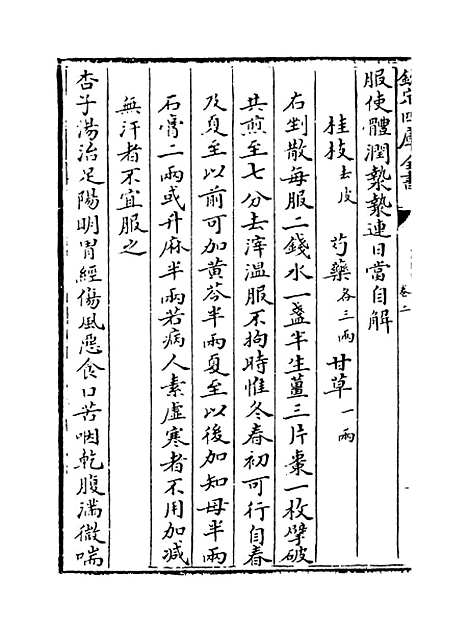 欽定四庫全書
卷二
服使體潤漐漐連日當自解
桂枝去皮 芍藥各三兩 甘草一兩
右剉散每服二錢水一盞半生薑三片棗一枚擘破
共煎至七分去滓溫服不拘時惟冬春初可行自春
及夏至以前可加黄芩半兩夏至以後加知母半兩
石膏二兩或升麻半兩若病人素虛寒者不用加減
無汗者不宜服之
杏子湯治足陽明胃經傷風惡食口苦咽乾腹滿微喘